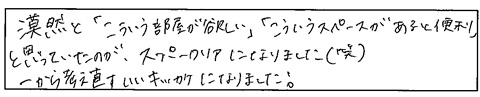 漠然と「こういう部屋が欲しい」「こういうスペースがあると便利」
と思っていたのが、スケールクリアになりました(笑)
一から考え直すいいキッカケになりました!